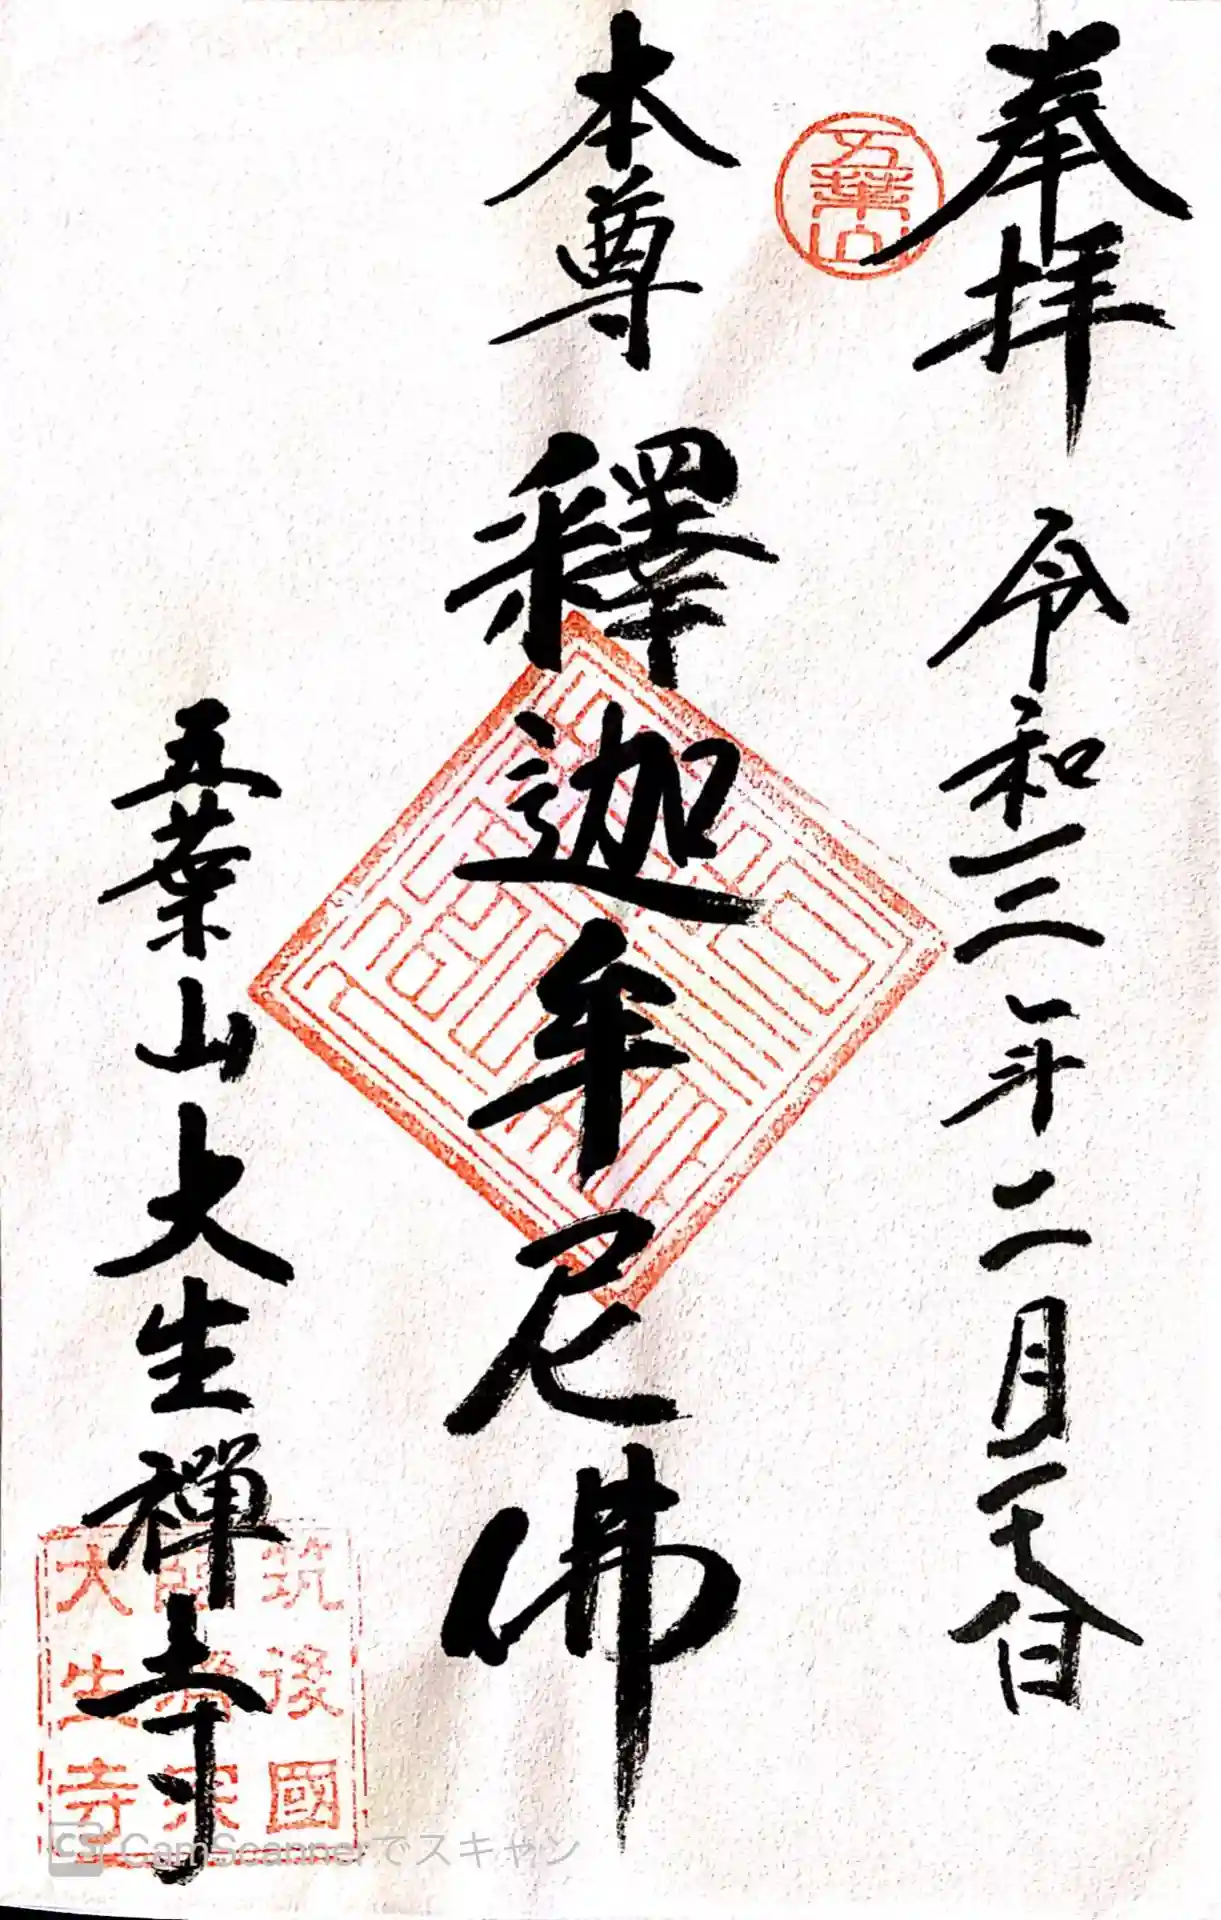 奉拝
令和三年二月二十八日
五葉山
本尊
釋迦牟尼佛
五葉山大生禅寺
筑後國
臨濟宗
大生寺
CS CamScannerでスキャン